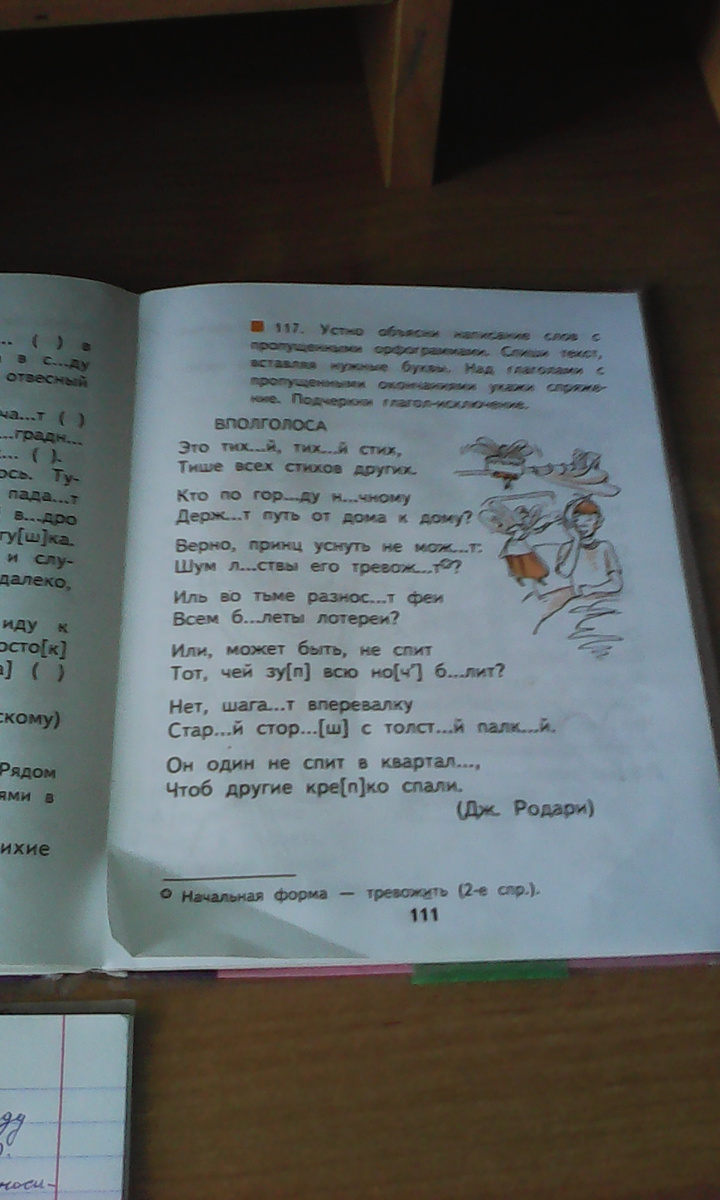 ... ( ) в
в с...ду
отвесный
ча...т ( )
...градн...
... ( ).
ось. Ту-
пада...т
в...дро
гу[ш]ка.
и слу-
далеко,
иду к
осто[к]
а] ( )
скому)
Рядом
ями в
ихие
117. Устно объясни написание слов с
пропущенными орфограммами. Спиши текст,
вставляя нужные буквы. Над глаголами с
пропущенными окончаниями укажи спряже-
ние. Подчеркни глагол-исключение.
ВПОЛГОЛОСА
Это тих...й, тих...й стих,
Тише всех стихов других.
Кто по гор...ду н...чному
Держ...т путь от дома к дому?
Верно, принц уснуть не мож...т:
Шум л...ствы его тревож...т?
Иль во тьме разнос...т феи
Всем б...леты лотереи?
Или, может быть, не спит
Тот, чей зу[п] всю но[ч'] б...лит?
Нет, шага...т вперевалку
Стар...й стор...[ш] с толст...й палк...й.
Он один не спит в квартал...,
Чтоб другие кре[п]ко спали.
(Дж. Родари)
Начальная форма — тревожить (2-е спр.).
111
ду
носи-